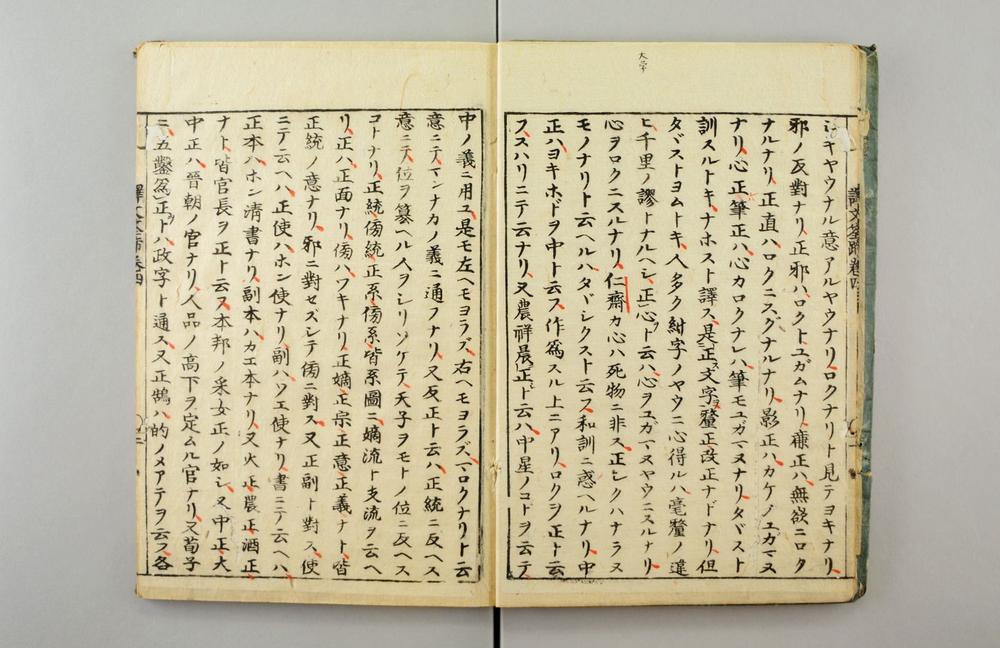 大学
キヤウナル意アルヤウナリ、ロクナリト見テヨキナリ、
邪ノ反對ナリ、正邪ハロクトユガムナリ、廉正ハ無欲ニロク
ナルナリ、正直ハロクニスグナルナリ、影正ハカゲノユガマヌ
ナリ、心正筆正ハ心カロクナレハ、筆モユガマヌナリ、タヾスト
訓スルトキ、ナホスト譯ス、是正文字釐正改正ナドナリ、但
タヾストヨムトキ、人多ク紏字ノヤウニ心得ルハ、毫釐ノ違
ヒ、千里ノ謬トナルヘシ、正心ト云ハ、心ヲユガマヌヤウニスルナリ
心ヲロクニスルナリ、仁齋カ心ハ死物ニ非ス、正シクハナラヌ
モノナリト云ヘルハ、タヾシクスト云フ和訓ニ惑ヘルナリ、中
正ハヨキホドヲ中ト云フ、作爲スル上ニアリ、ロクヲ正ト云
フ、スハリニテ云ナリ、又農祥晨正ト云ハ、中星ノコトヲ云テ、
中ノ義ニ用ユ、是モ左ヘモヨラズ、右ヘモヨラズ、マロクナリト云
意ニテ、マンナカノ義ニ通フナリ、又反正ト云ハ、正統ニ反ヘス
意ニテ、位ヲ簒ヘル人ヲシリゾケテ、天子ヲモトノ位ニ反ヘス
コトナリ、正統傍統正系傍系皆系圖ニ、嫡流ト支流ヲ云ヘ
リ、正ハ、正面ナリ、傍ハ、ワキナリ、正嫡正宗正意正義ナト、皆
正統ノ意ナリ、邪ニ對セズシテ傍ニ對ス、又正副ト對ス、使
ニテ云ヘハ、正使ハホン使ナリ、副ハソエ使ナリ、書ニテ云ヘハ、
正本ハホン清書ナリ、副本ハカエ本ナリ、又火正農正酒正
ナト、皆官長ヲ正ト云フ、本邦ノ采女正ノ如シ、又中正大
中正ハ、晉朝ノ官ナリ、人品ノ高下ヲ定ムル官ナリ、又荀子
ニ、五鑿爲正トハ、政字ト通ス、又正鵠ハ、的ノメアテヲ云フ、各